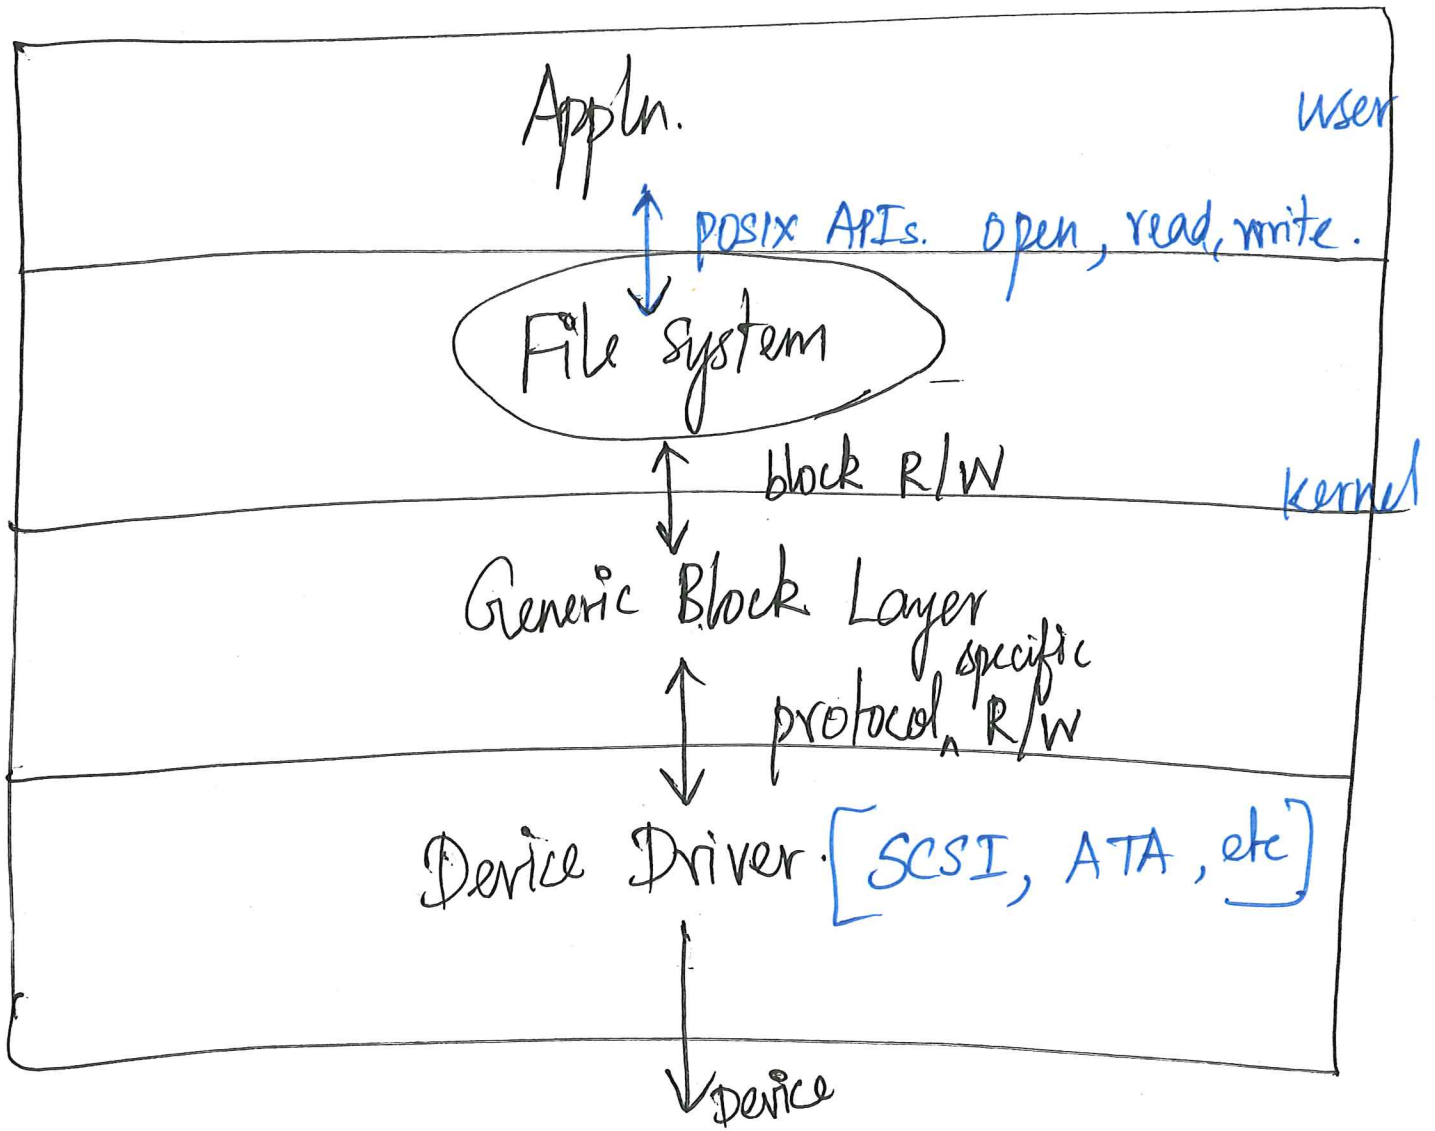 Appln.
user
POSIX APIs. open, read, write.
File system
block R/W
kernel
Generic Block Layer
specific
protocol ^ R/W
Device Driver. [SCSI, ATA, etc]
Device